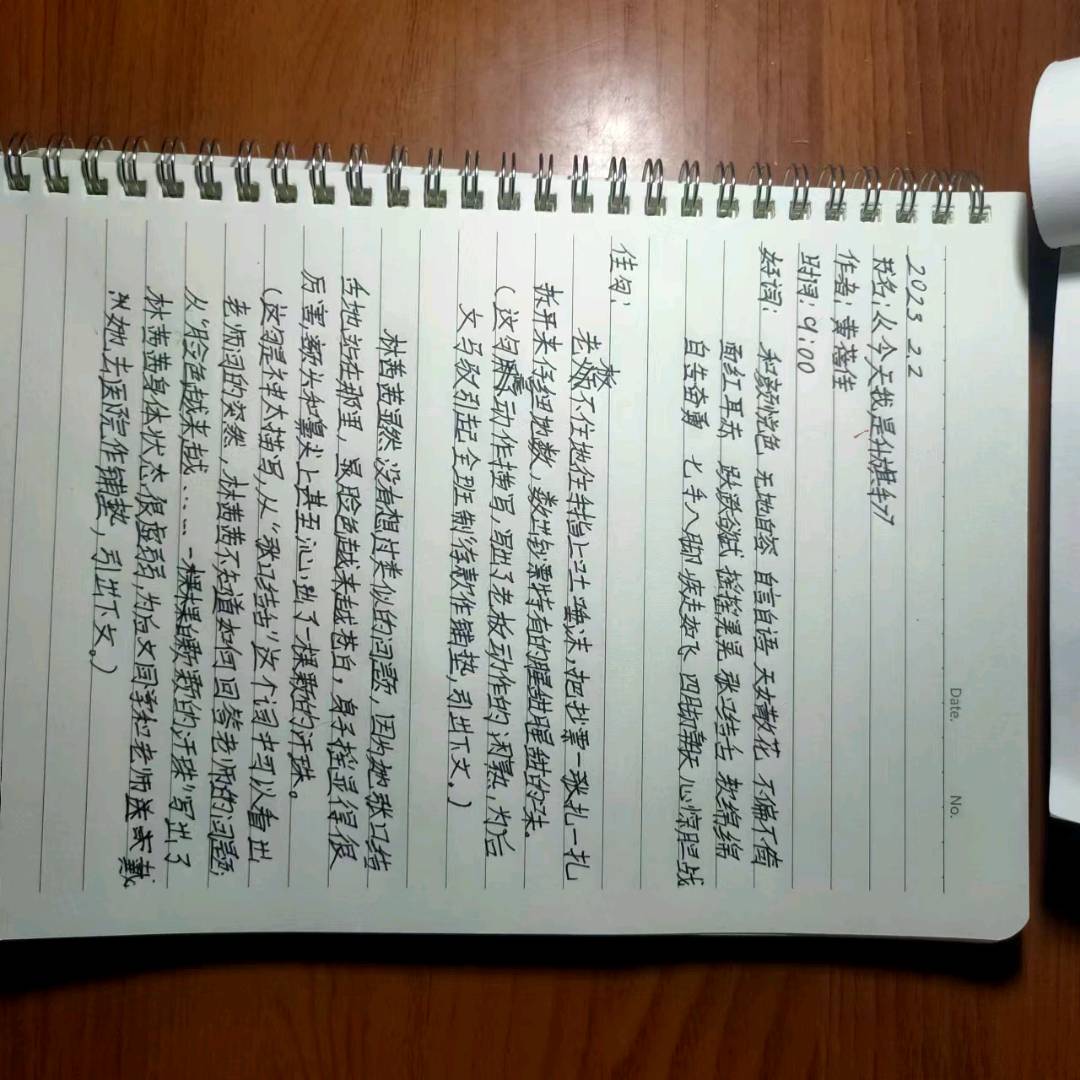 Date.
No.
2023 2.2
书名:今天我是升旗手
作者:黄蓓佳
时间:9:00
好词: 和颜悦色 无地自容 自言自语 天女散花 不偏不倚
面红耳赤 跃跃欲试 摇摇晃晃 张口结舌 软绵绵
自告奋勇 七手八脚 疾走如飞 四脚朝天 心惊胆战
佳句:
老板不住地往手指上吐唾沫,把抄票一张扎一扎
拆开来仔细地数,数出钞票特有的腥甜腥甜的味。
(这句动作描写,写出了老板动作的闲熟,为后
文马驭引起全班制存款作铺垫,引出下文。)
林茜茜显然没有想过类似的问题,因为她张口结
舌地站在那里,显脸色越来越苍白,身子摇显得很
厉害,额头和鼻尖上甚至沁出了一棵颗的汗珠。
(这句是神太描写,从“张口结舌”这个词中可以看出
老师问的突然,林茜茜不知道如何回答老师的问题;
从“脸色越来越……一颗颗的汗珠”写出了
林茜茜身体状态很虚弱,为后文同学和老师送
她去医院作铺垫,引出下文。)